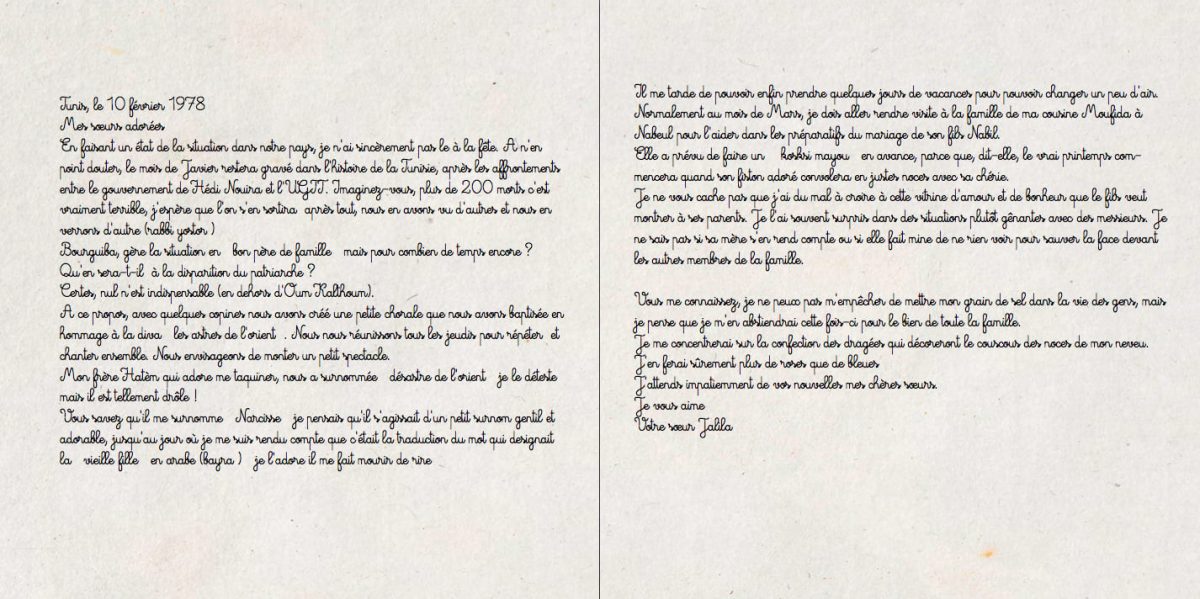 Tunis, le 10 février 1978
Mes sœurs adorées
En faisant un état de la situation dans notre pays, je n'ai sincèrement pas le à la fête. A n'en
point douter, le mois de Javier restera gravé dans l'histoire de la Tunisie, après les affrontements
entre le gouvernement de Hédi Nouira et l'UGTT. Imaginez-vous, plus de 200 morts c'est
vraiment terrible, j'espère que l'on s'en sortira après tout, nous en avons vu d'autres et nous en
verrons d'autre (rabbi yostor )
Bourguiba, gère la situation en bon père de famille mais pour combien de temps encore ?
Qu'en sera-t-il à la disparition du patriarche ?
Certes, nul n'est indispensable (en dehors d'Oum Kalthoum).
A ce propos, avec quelques copines nous avons créé une petite chorale que nous avons baptisée en
hommage à la diva les astres de l'orient . Nous nous réunissons tous les jeudis pour répéter et
chanter ensemble. Nous envisageons de monter un petit spectacle.
Mon frère Hatèm qui adore me taquiner, nous a surnommée désastre de l'orient je le déteste
mais il est tellement drôle !
Vous savez qu'il me surnomme Narcisse je pensais qu'il s'agissait d'un petit surnom gentil et
adorable, jusqu'au jour où je me suis rendu compte que c'était la traduction du mot qui designait
la vieille fille en arabe (bayra ) je l'adore il me fait mourir de rire
Il me tarde de pouvoir enfin prendre quelques jours de vacances pour pouvoir changer un peu d'air.
Normalement au mois de Mars, je dois aller rendre visite à la famille de ma cousine Moufida à
Nabeul pour l'aider dans les préparatifs du mariage de son fils Nabil.
Elle a prévu de faire un kosksi mayou en avance, parce que, dit-elle, le vrai printemps com-
mencera quand son fiston adoré convolera en justes noces avec sa chérie.
Je ne vous cache pas que j'ai du mal à croire à cette vitrine d'amour et de bonheur que le fils veut
montrer à ses parents. Je l'ai souvent surpris dans des situations plutôt gênantes avec des messieurs. Je
ne sais pas si sa mère s'en rend compte ou si elle fait mine de ne rien voir pour sauver la face devant
les autres membres de la famille.
Vous me connaissez, je ne peux pas m'empêcher de mettre mon grain de sel dans la vie des gens, mais
je pense que je m'en abstiendrai cette fois-ci pour le bien de toute la famille.
Je me concentrerai sur la confection des dragées qui décoreront le couscous des noces de mon neveu.
J'en ferai sûrement plus de roses que de bleues
J'attends impatiemment de vos nouvelles mes chères sœurs.
Je vous aime
Votre sœur Jalila